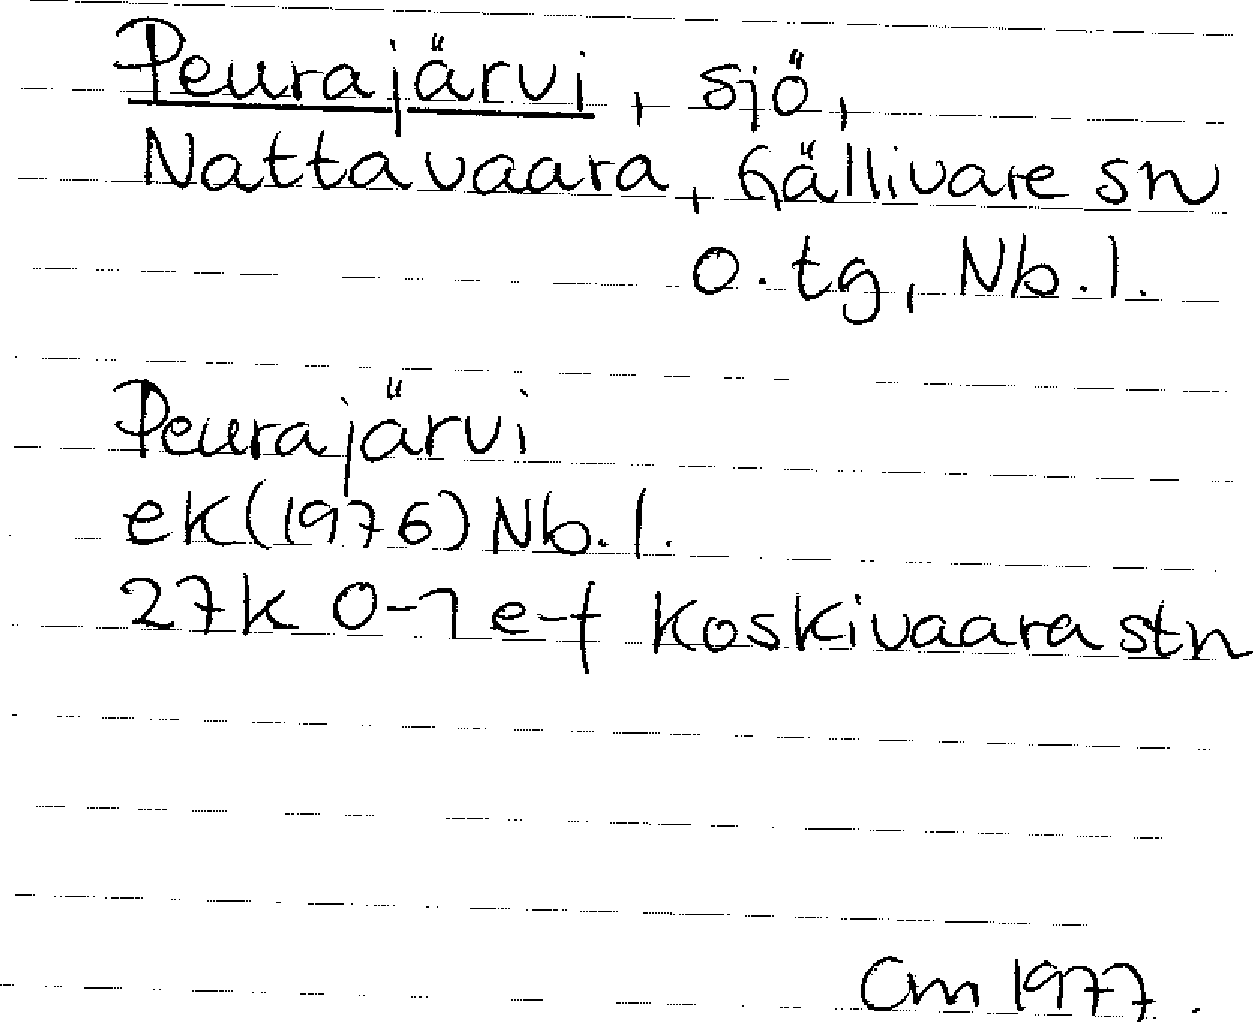 Peurajärvi, sjö,
Nattavaara, Gällivare sn
o. tg, Nb. l.
Peurajärvi
ek (1976) Nb. l.
27K 0-1 e-f Koskivaara stn
Cm 1977.